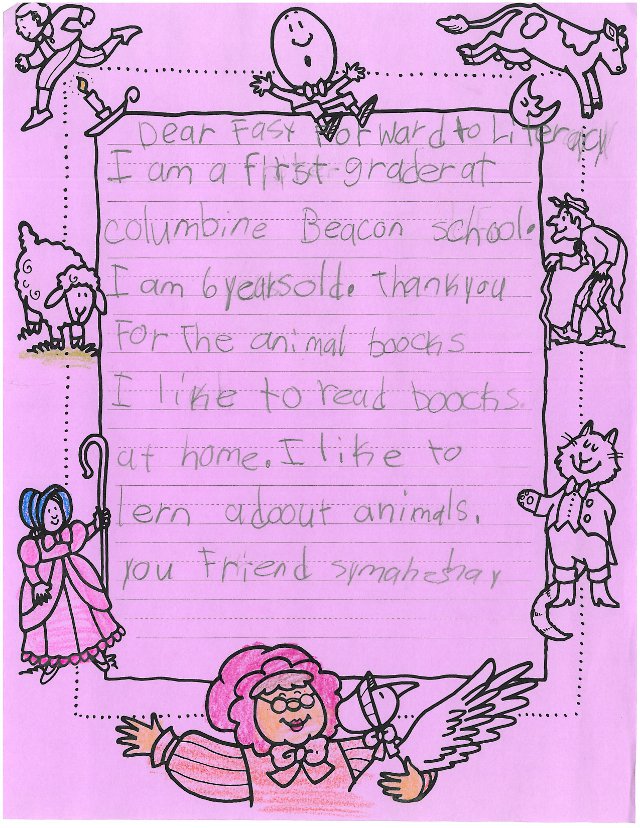 Dear Fast Forward to Literacy
I am a first grader at
columbine Beacon school.
I am 6 years old. Thank you
For The animal boocks
I like to read boocks.
at home. I like to
lern adoout animals.
you Friend